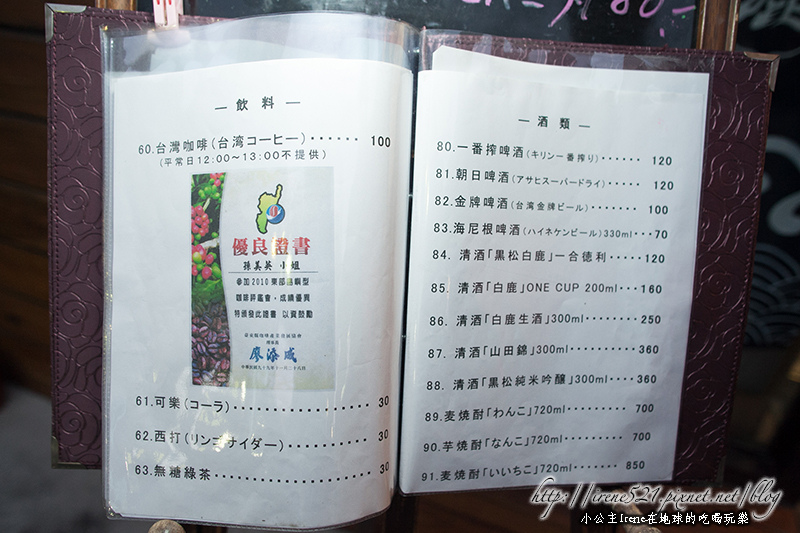 — 飲 料 —
60.台灣咖啡(台湾コーヒー)······ 100
(平常日12:00～13:00不提供)
優良證書
孫美英 小姐
參加2010東部
咖啡評鑑會，成績優異
特頒發此證書 以資鼓勵
理事長
廖添威
中華民國九十九年十一月二十八日
61.可樂(コーラ)···················· 30
62.西打(リンゴサイダー)·············· 30
63.無糖綠茶························ 30
— 酒 類 —
80.一番搾啤酒(キリン一番搾り)······ 120
81.朝日啤酒(アサヒスーパードライ)····· 120
82.金牌啤酒(台湾金牌ビール)······· 100
83.海尼根啤酒(ハイネケンビール)330ml···70
84. 清酒「黒松白鹿」一合徳利·····120
85. 清酒「白鹿」ONE CUP 200ml···160
86. 清酒「白鹿生酒」300ml······· 250
87. 清酒「山田錦」300ml········ 360
88. 清酒「黒松純米吟醸」300ml···· 360
89.麦焼酎「わんこ」720ml········· 700
90.芋焼酎「なんこ」720ml········ 700
91.麦焼酎「いいちこ」720ml······· 850
http://irene521.pixnet.net/blog
小公主Irene在地球的吃喝玩樂